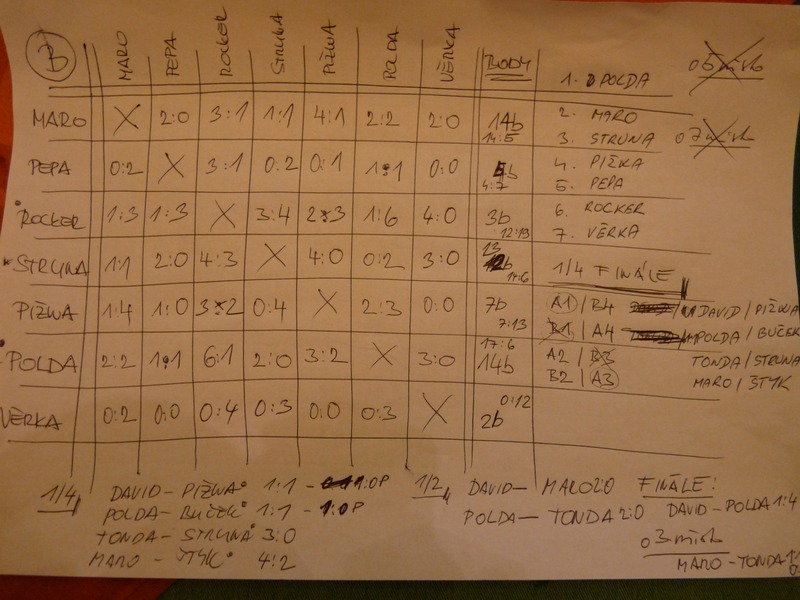 B MARO PEPA ROCKER STRUNA PIŽWA POLDA VĚRKA BODY
MARO X 2:0 3:1 1:1 4:1 2:2 2:0 14b 14:5
PEPA 0:2 X 3:1 0:2 0:1 1:1 0:0 b 4:7
ROCKER 1:3 1:3 X 3:4 2:3 1:6 4:0 3b 12:13
STRUNA 1:1 2:0 4:3 X 4:0 0:2 3:0 13 b 14:6
PIŽWA 1:4 1:0 3:2 0:4 X 2:3 0:0 7b 7:13
POLDA 2:2 1:1 6:1 2:0 3:2 X 3:0 17:6 14b
VĚRKA 0:2 0:0 0:4 0:3 0:0 0:3 X 0:12 2b
1. POLDA
2. MARO
3. STRUNA
4. PIŽKA
5. PEPA
6. ROCKER
7. VĚRKA
1/4 FINÁLE
A1/B4 DAVID/PIŽWA
B1/A4 POLDA/BUČEK
A2/B3 TONDA/STRUNA
B2/A3 MARO/ŠTYK
1/4 DAVID – PIŽWA 1:1 – 1:0P
POLDA – BUČEK 1:1 – 1:0P
TONDA – STRUNA 3:0
MARO – ŠTYK 4:2
1/2 DAVID – MARO 2:0
POLDA – TONDA 2:0
FINÁLE:
DAVID – POLDA 1:4
o 3 místo
MARO – TONDA